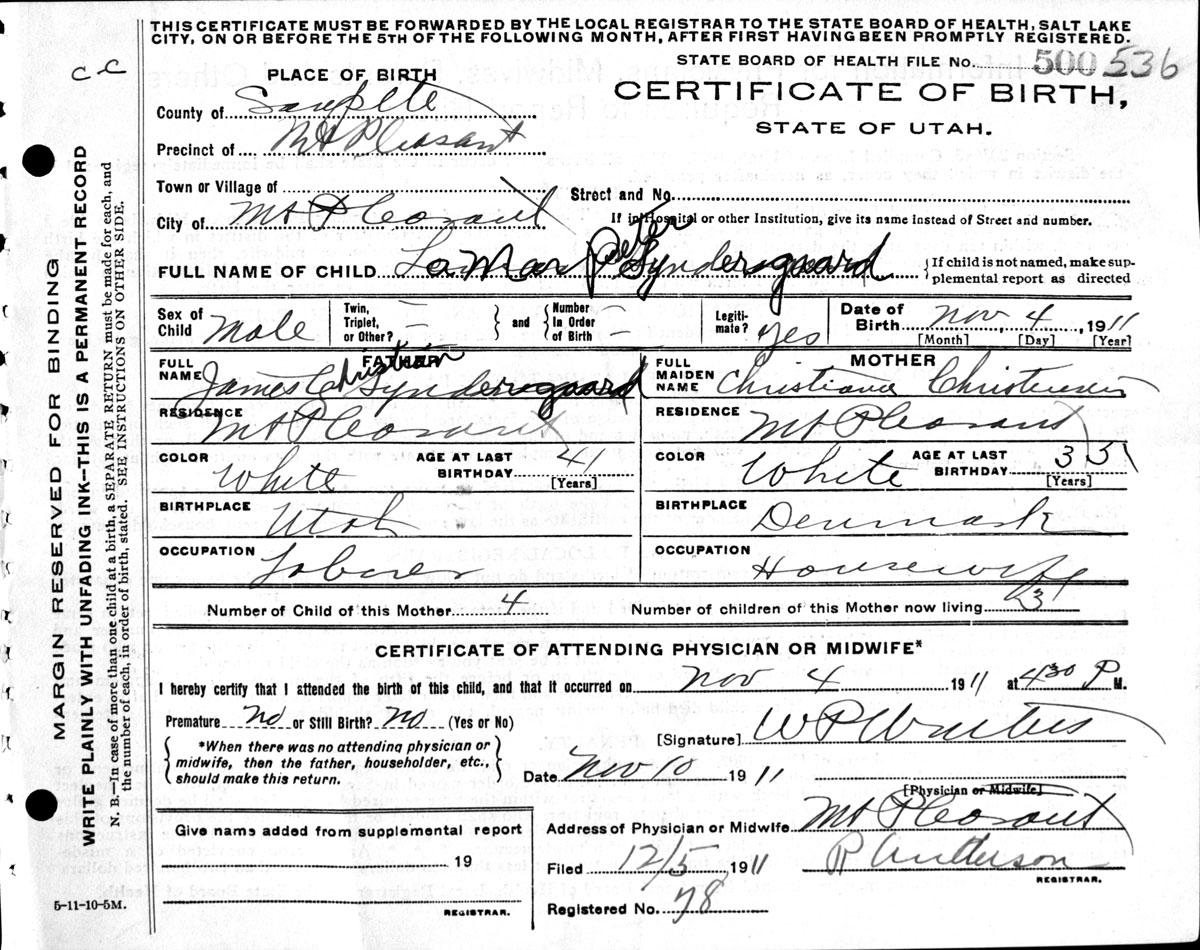 THIS CERTIFICATE MUST BE FORWARDED BY THE LOCAL REGISTRAR TO THE STATE BOARD OF HEALTH, SALT LAKE
CITY, ON OR BEFORE THE 5TH OF THE FOLLOWING MONTH, AFTER FIRST HAVING BEEN PROMPTLY REGISTERED.
C-C
STATE BOARD OF HEALTH FILE No. 500 536
PLACE OF BIRTH
CERTIFICATE OF BIRTH,
STATE OF UTAH.
County of Sanpete
Precinct of Mt Pleasant
Town or Village of
Street and No.
City of Mt Pleasant
If in Hospital or other Institution, give its name instead of Street and number.
FULL NAME OF CHILD LaMar Peter Syndergaard
{If child is not named, make sup-
plemental report as directed
Sex of Child Male
Twin, Triplet, or Other? —
and
Number In Order of Birth —
Legiti- mate? Yes
Date of Birth Nov 4, 1911
[Month] [Day] [Year]
FATHER
FULL NAME James Christian Syndergaard
RESIDENCE Mt Pleasant
COLOR White
AGE AT LAST BIRTHDAY 41
[Years]
BIRTHPLACE Utah
OCCUPATION Laborer
MOTHER
FULL MAIDEN NAME Christiana Christensen
RESIDENCE Mt Pleasant
COLOR White
AGE AT LAST BIRTHDAY 35
(Years)
BIRTHPLACE Denmark
OCCUPATION Housewife
Number of Child of this Mother 4
Number of children of this Mother now living 3
CERTIFICATE OF ATTENDING PHYSICIAN OR MIDWIFE*
I hereby certify that I attended the birth of this child, and that it occurred on Nov 4 1911 at 4 30 P M.
Premature No or Still Birth? No (Yes or No)
{*When there was no attending physician or
midwife, then the father, householder, etc.,
should make this return.}
[Signature] W P Winters
Date Nov 10 1911
[Physician or Midwife]
Give name added from supplemental report
19
REGISTRAR.
Address of Physician or Midwife Mt Pleasant
Filed 12/5 1911
REGISTRAR.
Registered No. 78
5-11-10-5M.
MARGIN RESERVED FOR BINDING
WRITE PLAINLY WITH UNFADING INK—THIS IS A PERMANENT RECORD
N. B.—In case of more than one child at a birth, a SEPARATE RETURN must be made for each, and
the number of each, in order of birth, stated. SEE INSTRUCTIONS ON OTHER SIDE.